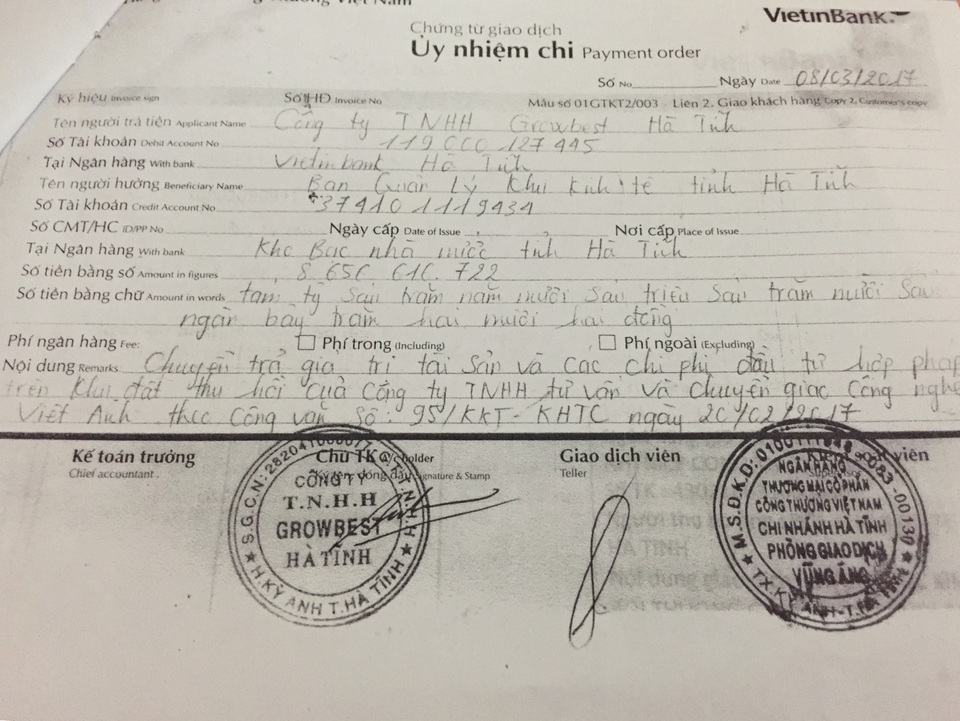 VietinBank
Chứng từ giao dịch
Ủy nhiệm chi Payment order
Số No Ngày Date 08/03/2017
Ký hiệu Invoice sign Số HĐ Invoice No Mẫu số 01GTKT2/003 - Liên 2. Giao khách hàng Copy 2, Customer's copy
Tên người trả tiền Applicant Name Công ty TNHH Growbest Hà Tĩnh
Số Tài khoản Debit Account No 119000127445
Tại Ngân hàng With bank Vietinbank Hà Tĩnh
Tên người hưởng Beneficiary Name Ban Quản Lý Khu kinh tế tỉnh Hà Tĩnh
Số Tài khoản Credit Account No 374101119434
Số CMT/HC ID/PP No Ngày cấp Date of Issue Nơi cấp Place of Issue
Tại Ngân hàng With bank Kho Bạc nhà nước tỉnh Hà Tĩnh
Số tiền bằng số Amount in figures 8.656.616.722
Số tiền bằng chữ Amount in words tám tỷ sáu trăm năm mươi sáu triệu sáu trăm mười sáu
ngàn bảy trăm hai mươi hai đồng
Phí ngân hàng Fee: Phí trong (Including) Phí ngoài (Excluding)
Nội dung Remarks Chuyển trả giá trị tài sản và các chi phí đầu tư hợp pháp
trên khu đất thu hồi của Công ty TNHH tư vấn và chuyển giao Công nghệ
Việt Anh theo Công văn số: 95/KKT-KHTC ngày 20/02/2017
Kế toán trưởng Chủ TK A/c holder Giao dịch viên Kiểm soát viên
Chief accountant Signature & Stamp Teller
CÔNG TY
T.N.H.H
GROWBEST
HÀ TĨNH
H.KỲ ANH T.HÀ TĨNH
NGÂN HÀNG
THƯƠNG MẠI CỔ PHẦN
CÔNG THƯƠNG VIỆT NAM
CHI NHÁNH HÀ TĨNH
PHÒNG GIAO DỊCH
VŨNG ÁNG